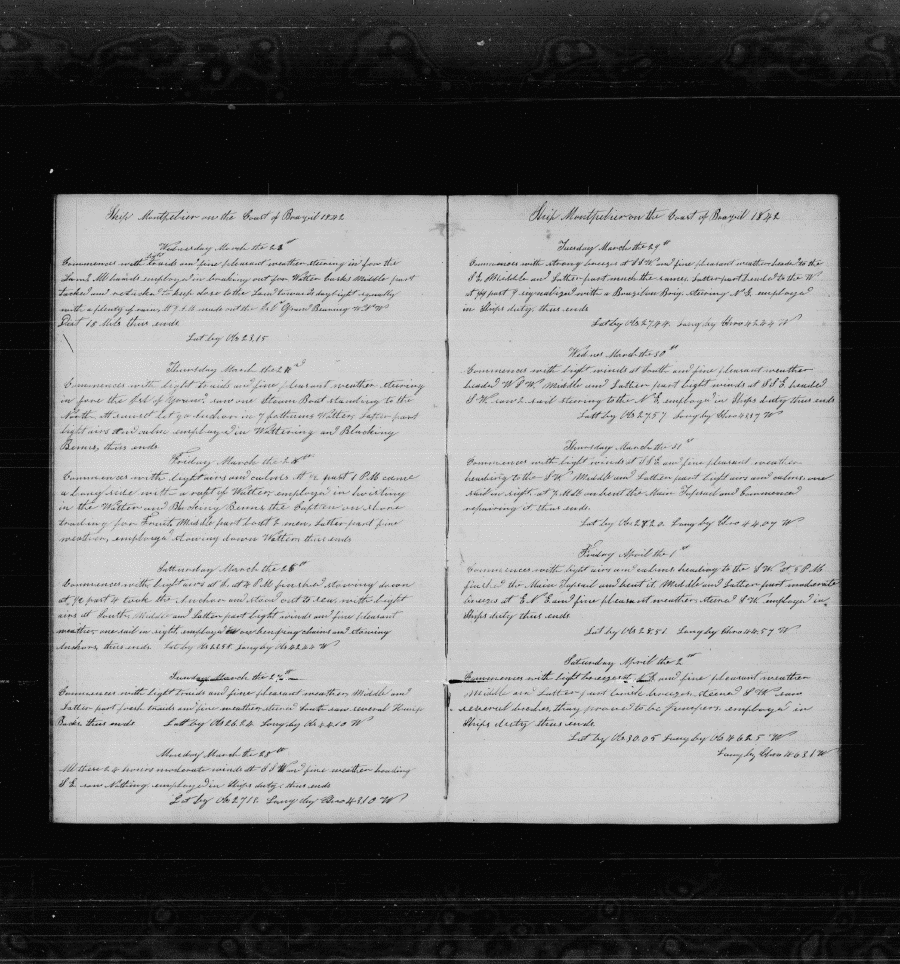 Ship Montpelier on the Coast of Brazil 1842
Wednesday March the 23th
light
Commences with traids and fine pleasant weather steering in for the
Land All hands employed in breaking out for Watter Casks Middle part
tacked and not to keep close to the Land towards daylight squally
with a plenty of rain, at 9 A M made out the Grand Bearing W S W
Dist 18 Mils thus ends
Lat by Ob 23.15
Thursday March the 24th
Commences with light traids and fine pleasant weather steering
in fore the saw one Steam Boat standing to the
North. At sunset let go Anchor in 7 fathums Watter, Later part
light airs and calm employed in Wattering and Blacking
Bends, thus ends
Friday March the 2th
Commences with light airs and calms At ½ past 1 P.M came
a long side with a raft of Watter employed in hoisting
in the Watter and Blacking Bends the Capten on shore
trading for Fruit, Middle part Boat & men, Latter part fine
weather, employed stowing down Watter, thus ends
Satturday March the 26th
Commences with light airs at S. at 4 P.M finished stowing down
at ½ past 4 took the Anchor and stood out to sea with light
airs at South, Middle and Latter part light winds and fine pleasant
weather, one sail in sight, employed in unbending chains and stowing
Anchors, thus ends. Lat by Ob Long by Ob 42.44 W
Sunday March the 27th
Commences with light traids and fine pleasant weather, Middle and
Latter part fresh traids and fine weather, steered South saw several Hump
Backs thus ends Latt by Ob 26.24 Long by Ob 44.10 W
Monday March the 28th
All these 24 hours moderate winds at S S W and fine weather heading
S E. saw Nothing employed in Ships duty, thus ends
Lat by Ob 27.18 Long by Chro 43.10 W
Ship Montpelier on the Coast of Brazil 1842
Tuesday March the 29th
Commences with strong breezes at S S W and fine pleasant weather headed to the
S E Middle and Latter part much the same. Latter part headed to the W
at ½ past 9 signalized with a Brazilan Brig, steering N E, employed
in Ships duty, thus ends
Lat by Ob 27.44 Long by Chro 42.44 W
Wednes March the 30th
Commences with light winds at South and fine pleasant weather
headed W S W Middle and Latter part light winds at S S E headed
S W, saw 2 sail steering to the N E, employed in Ships duty thus ends
Latt by Ob 27.57 Long by Chro W
Thursday March the 31st
Commences with light winds at S S E and fine pleasant weather
heading to the S W Middle and Latter part light airs and calms, one
sail in sight, at 7 A.M unbent the Main Topsail and Commenced
repairing it thus ends
Lat by Ob 28.20. Long by Chro 44.07 W
Friday April the 1st
Commences with light airs and calms heading to the S W at 5 P.M
finished the Main Topsail and bent it, Middle and Latter part moderate
breezes at E N E and fine pleasant weather, steered S W employed in
Ships duty thus ends
Lat by Ob 28.51 Long by Chro 44.57 W
Satturday April the 2nd
Commences with light breezes at N E and fine pleasant weather
Middle and Latter part brisk breezes, steered S W saw
several breches, they proved to be Jumpers. employed in
Ships duty thus ends
Lat by Ob 30.05 Long by Ob 46.25 W
Long by Chro 46.31 W